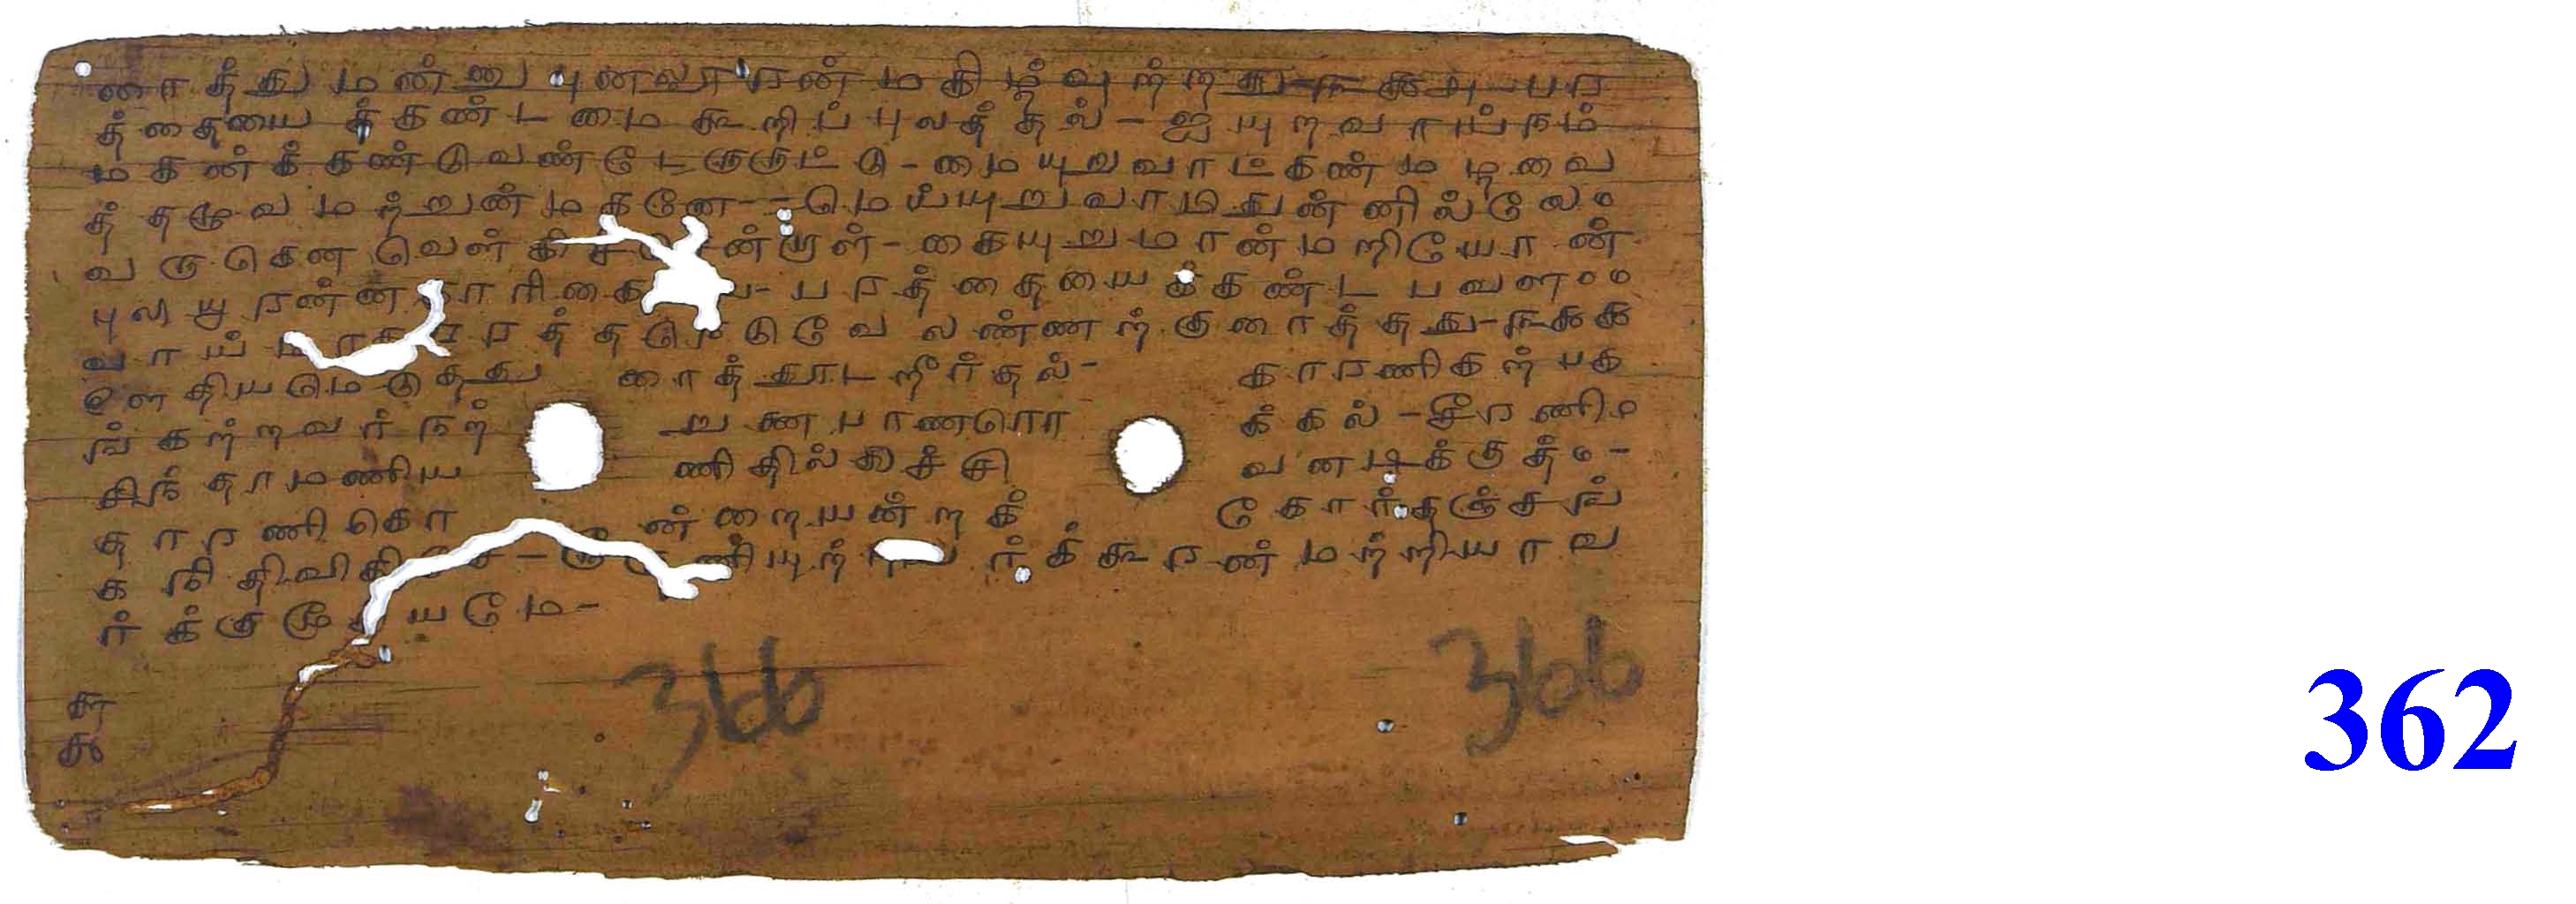 ரைத்து மன்னு புனலூரன் மகிழ்வுற்றது-௩௱௯௰-பர
த்தையைக்கண்டமை கூறிப் புலத்தல்-ஐயுறவாய்நம்
மகன்க்கண்டுவண்டேருருட்டு-மையுறுவாட்கண் மழவை
த் தழுவமற்றுன்மகனே--மெய்யுறுவாமிதுன்னில்லேம
வருகெனவெள்கிச்சென்றாள்-கையுறுமான்மறியோன்
புலியூரன்னகாரிகை -பரத்தையைக்கண்டபவளம
வாய் த்தடுநெடுவேலண்ணற்குரைத்தது-
ஊதியமெடுத்து ரைத்தூடறீர்தல்- காரணிகற்பக
ங்கற்றவர்நற் றுணைபாணரொ க்கல்-சீரணிம
சிந்தாமணிய ணிதில்லைச்சி வனடிக்குத்ம-
தாரணிகொ ன்றையன்றக் கோர்தஞ்சங்
கநிதிவிதி ணியுற் ர்க்கூரன்மற்றியாவ
ர்க்குமூதியமே-
366 366
362